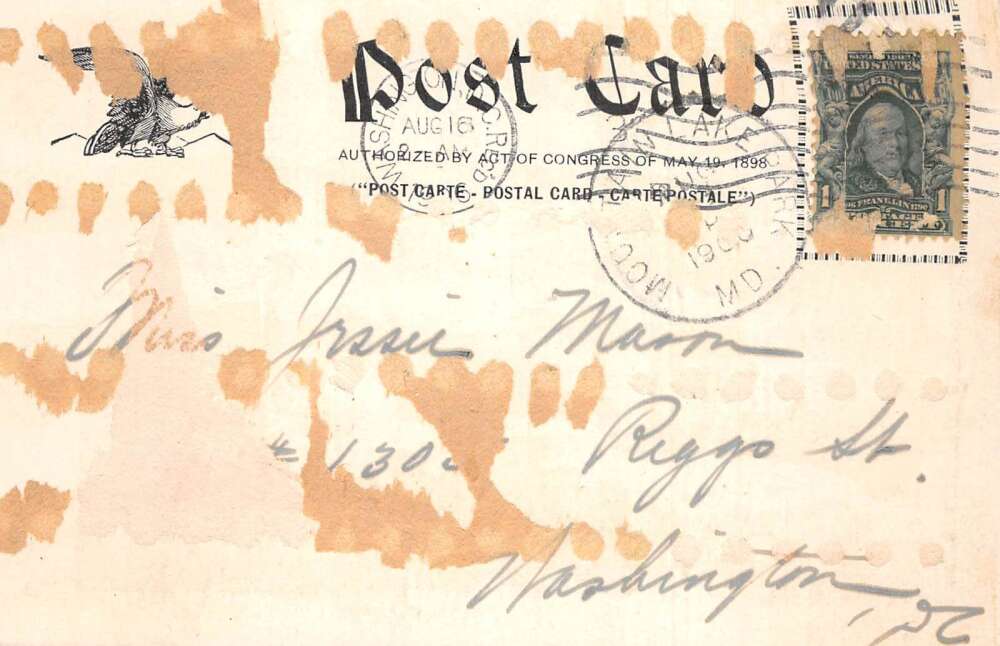 Post Card
AUTHORIZED BY ACT OF CONGRESS OF MAY 19, 1898
"POST CARTE - POSTAL CARD - CARTE POSTALE"
WASHINGTON, D.C. REC'D
AUG 16
AM
MOUNTAIN LAKE PARK
190
MD.
UNITED STATES
AMERICA
1 1
FRANKLIN
Miss Jessie Mason
# 130 Riggs St.
Washington, DC